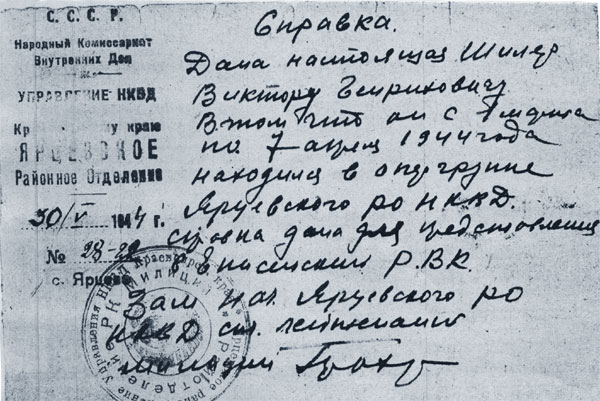 С. С. С. Р.
Народный Комиссариат
Внутренних Дел
УПРАВЛЕНИЕ НКВД
краю
ЯРЦЕВСКОЕ
Районное Отделение
30/V 1944 г.
№ 28-29
с. Ярцево
Справка.
Дана настоящая Шилер
Виктору Генриховичу
В том что он с 7 марта
по 7 апрел 1944 года
находился в опергрупе
Ярцевского РО НКВД.
справка дана для представления
в Енисейский Р.В.К.
Зам нач. Ярцевского РО
НКВД ст. лейтенант
милиции